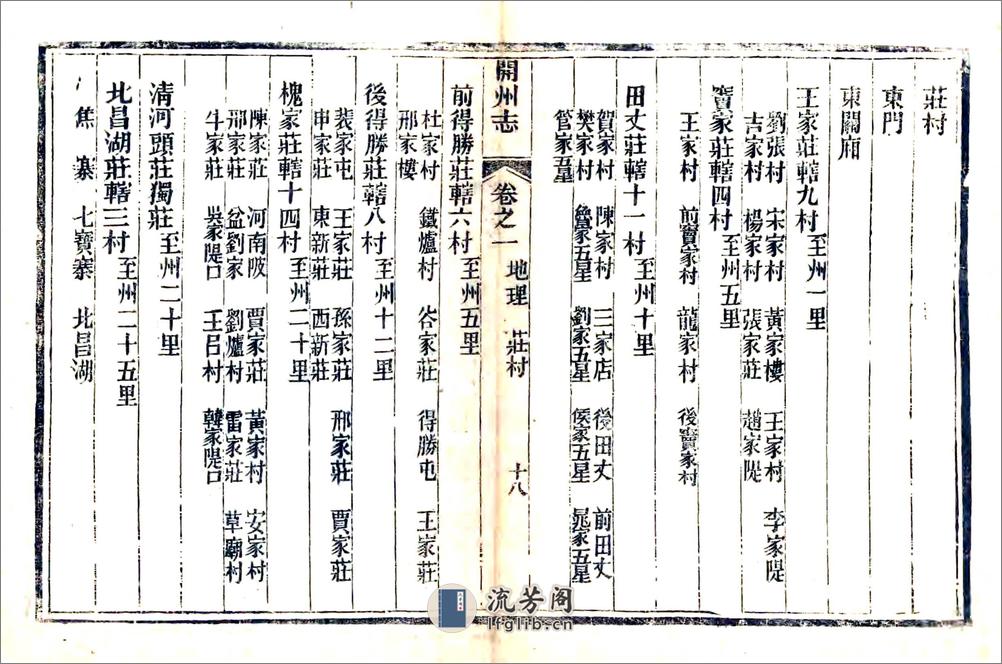 莊村
東門
東關廂
王家莊轄九村 至州一里
劉張村 宋家村 黃家樓 王家村 李家隄
吉家村 楊家村 張家莊 趙家隄
竇家莊轄四村 至州五里
王家村 前竇家村 龍家村 後竇家村
田丈莊轄十一村 至州十里
賀家村 陳家村 三家店 後田丈 前田丈
樊家村 魯家五星 劉家五星 侯家五星 晁家五星
管家五星
開州志 卷之一 地理 莊村 十八
前得勝莊轄六村 至州五里
杜家村 鐵爐村 谷家莊 得勝屯 王家莊
邢家樓
後得勝莊轄八村 至州十二里
裴家屯 王家莊 孫家莊 邢家莊 賈家莊
申家莊 東新莊 西新莊
槐家莊轄十四村 至州二十里
陳家莊 河南陂 賈家莊 黃家村 安家村
邢家莊 盆劉家 劉爐村 雷家莊 草廟村
牛家莊 吳家隄口 王呂村 韓家隄口
清河頭莊獨莊 至州二十里
北昌湖莊轄三村 至州二十五里
焦寨 七寶寨 北昌湖
流芳阁
lfglib.cn